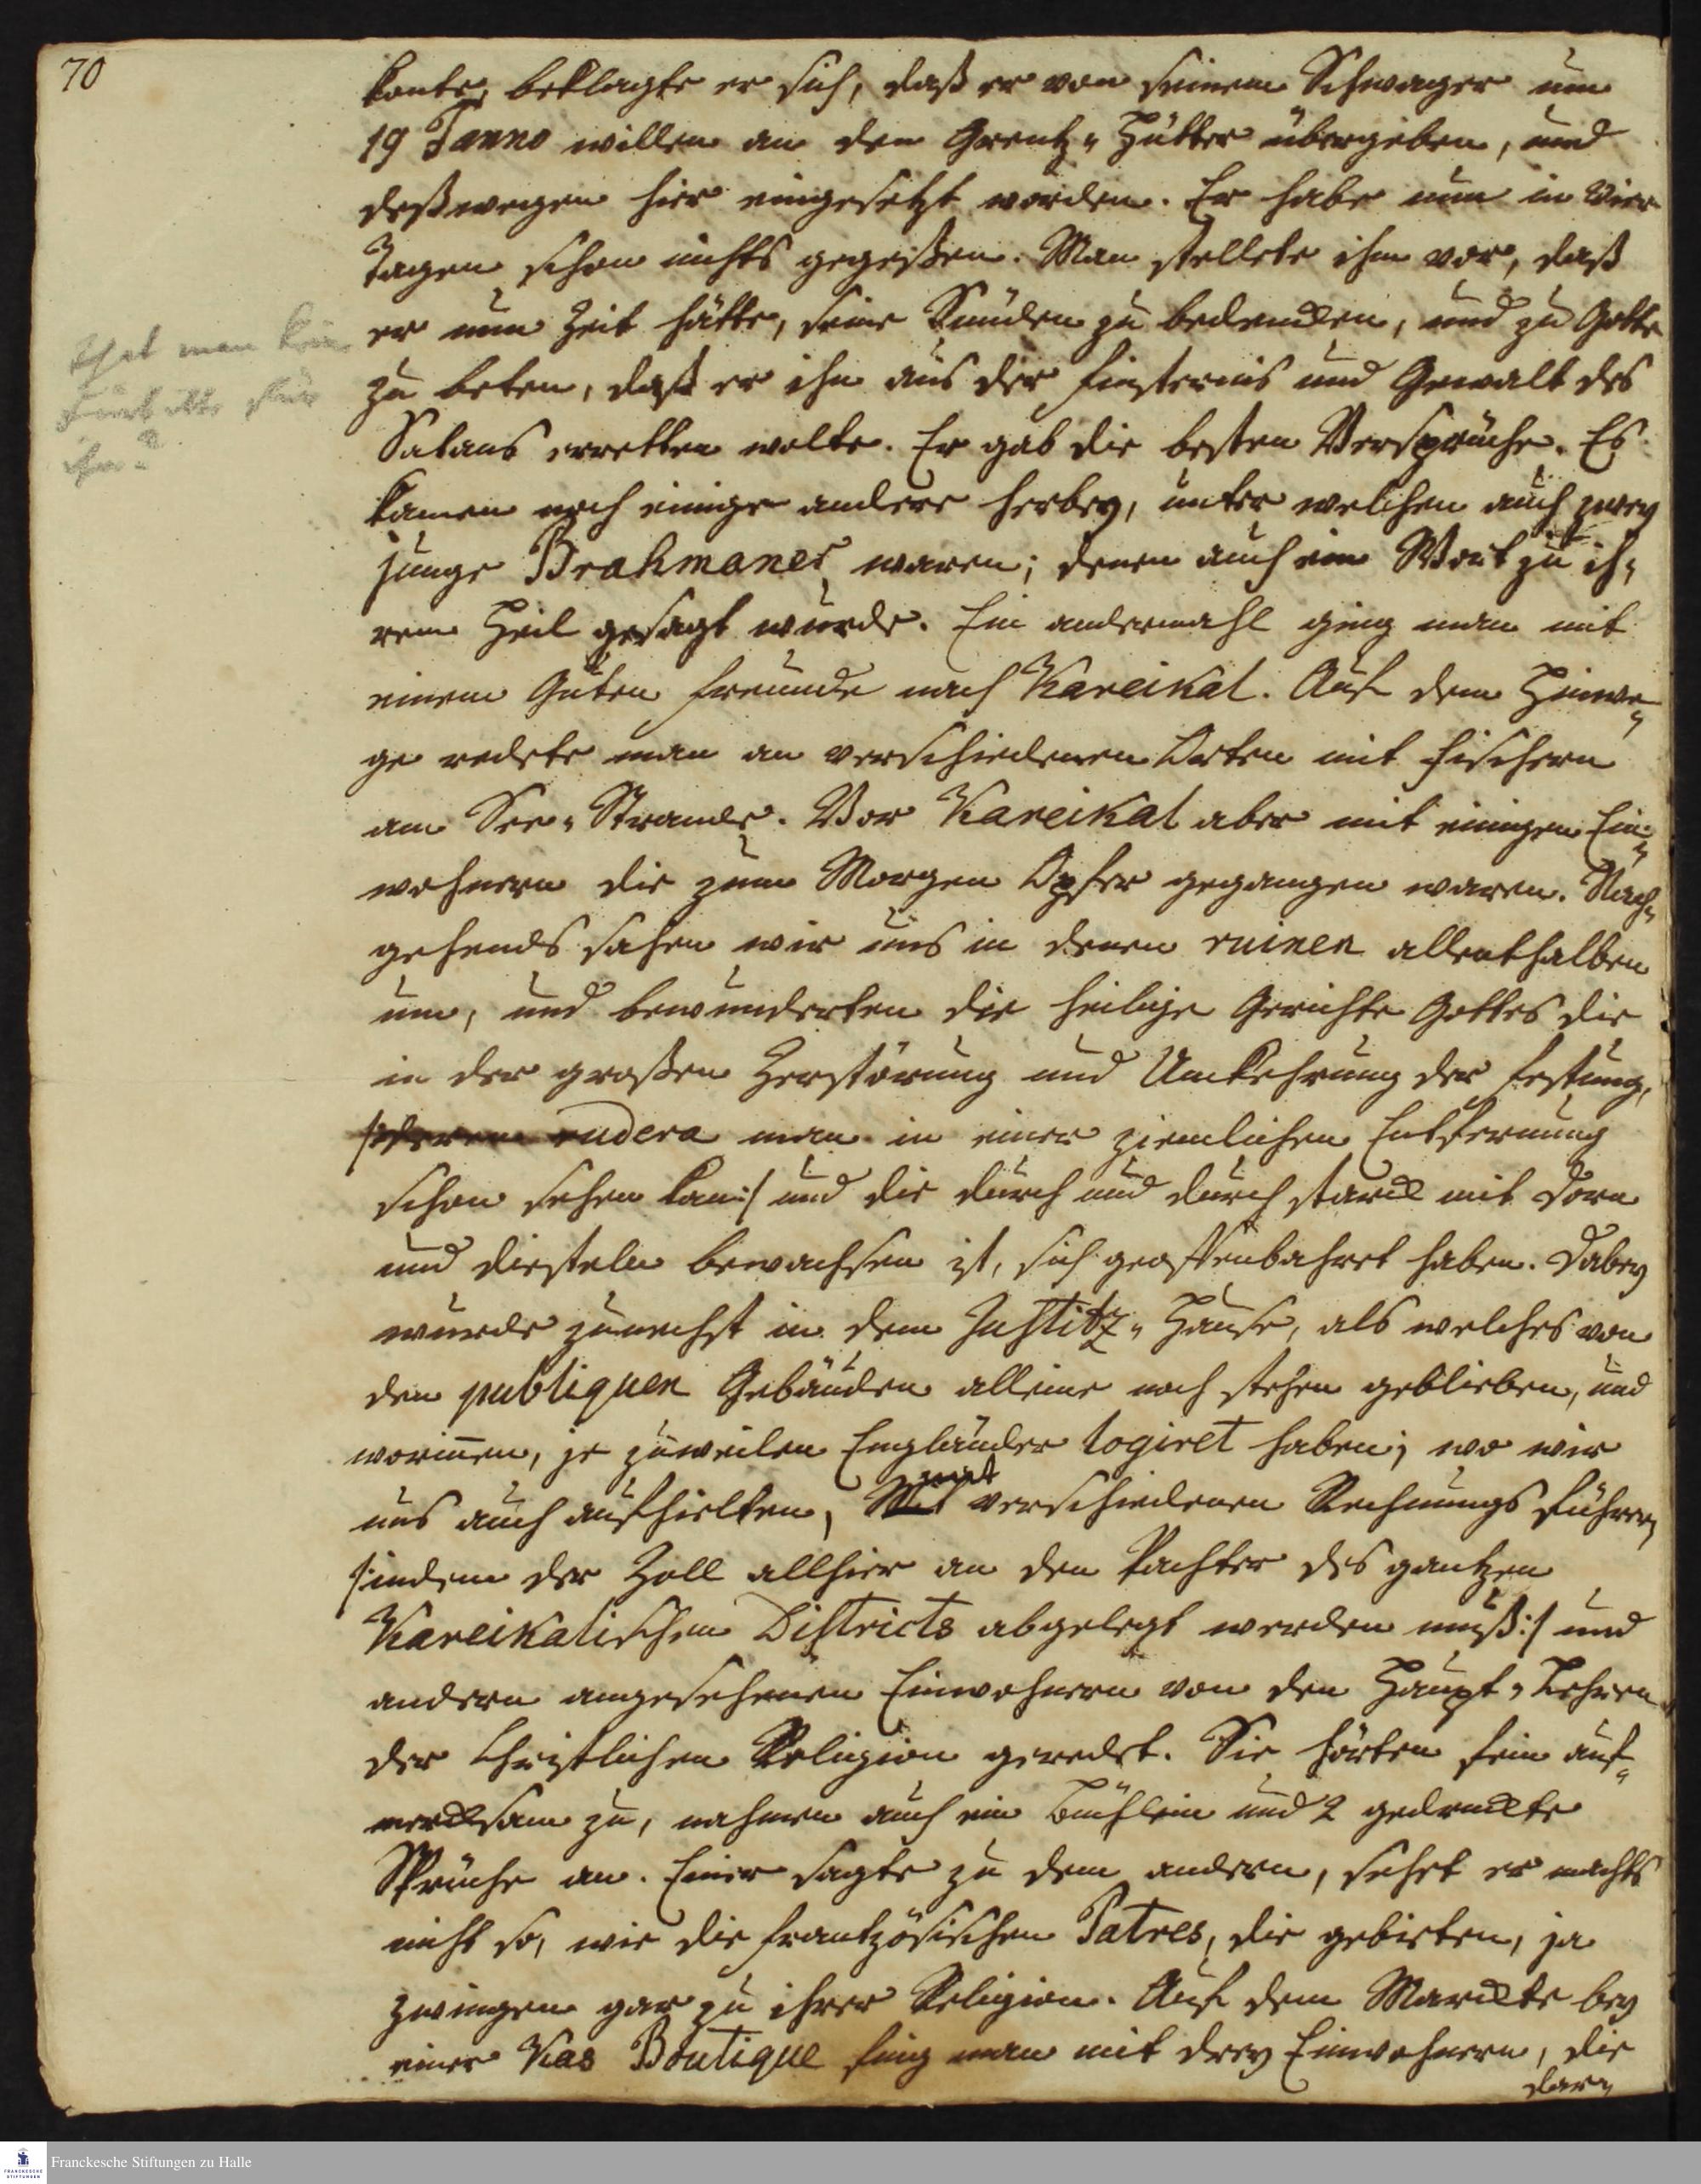 70
konte, beklagte er sich, daß er von seinem Schwager um
19 Fanno willen an den Grentz-Hütter übergeben, und
deßwegen hier eingesetzt worden. Er habe nun in vier
Tagen schon nichts gegeßen. Man stellete ihm vor, daß
er nun Zeit hätte, seine Sünden zu bedencken, und zu Gotte
zu beten, daß er ihn aus der Finsternis und Gewalt des
Satans erretten wolte. Er gab die besten Versprüche. Es
kamen noch einige andere herbey, unter welchen auch zwey
junge Brahmaner waren; denen auch ein Wort zu ih-
rem Heil gesagt wurde. Ein andermahl ging man mit
einem guten Freunde nach Kareikal. Auf dem Hinwe-
ge redete man an verschiedenen Orten mit Fischern
am See-Strande. Vor Kareikal aber mit einigen Ein-
wohnern die zum Morgen Opfer gegangen waren. Nach-
gehends sahen wir uns in denen ruinen allenthalben
um, und bewunderten die heilige Gerichte Gottes die
in der großen Zerstörung und Umkehrung der Festung,
/:deren rudera man in einer ziemlichen Entfernung
schon sehen kan:/ und die durch und durch starck mit Dorn
und Diesteln bewachsen ist, sich geoffenbahret haben. Dabey
wurde zunechst in dem Justitz-Hause, als welches von
den publiquen Gebäuden alleine noch stehen geblieben, und
worinnen, je zuweilen Engländer logiret haben; wo wir
uns auch aufhielten, mit verschiedenen Rechnungs Führern
/:indem der Zoll allhier an den Pachter des gantzen
Kareikalischen Districts abgelegt werden muß:/ und
andern angesehenen Einwohnern von den Haupt-Lehren
der Christlichen Religion geredet. Sie hörten fein auf-
mercksam zu, nahmen auch ein Büchlein und 2 gedruckte
Sprüche an. Einer sagte zu dem andern, sehet er machts
nicht so, wie die Frantzösischen Patres, die gebieten, ja
zwingen gar zu ihrer Religion. Auf dem Marckte bey
einer Kas Boutique fing man mit drey Einwohnern, die
dar-
That man kein
Fürbitte für
ihn?
Franckesche Stiftungen zu Halle
FRANCKESCHE
STIFTUNGEN